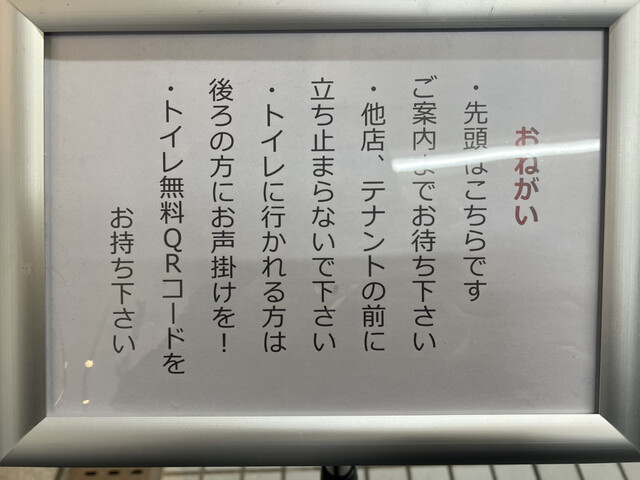 おねがい
・先頭はこちらです
ご案内までお待ち下さい
・他店、テナントの前に
立ち止まらないで下さい
・トイレに行かれる方は
後ろの方にお声掛けを!
・トイレ無料QRコードを
お持ち下さい